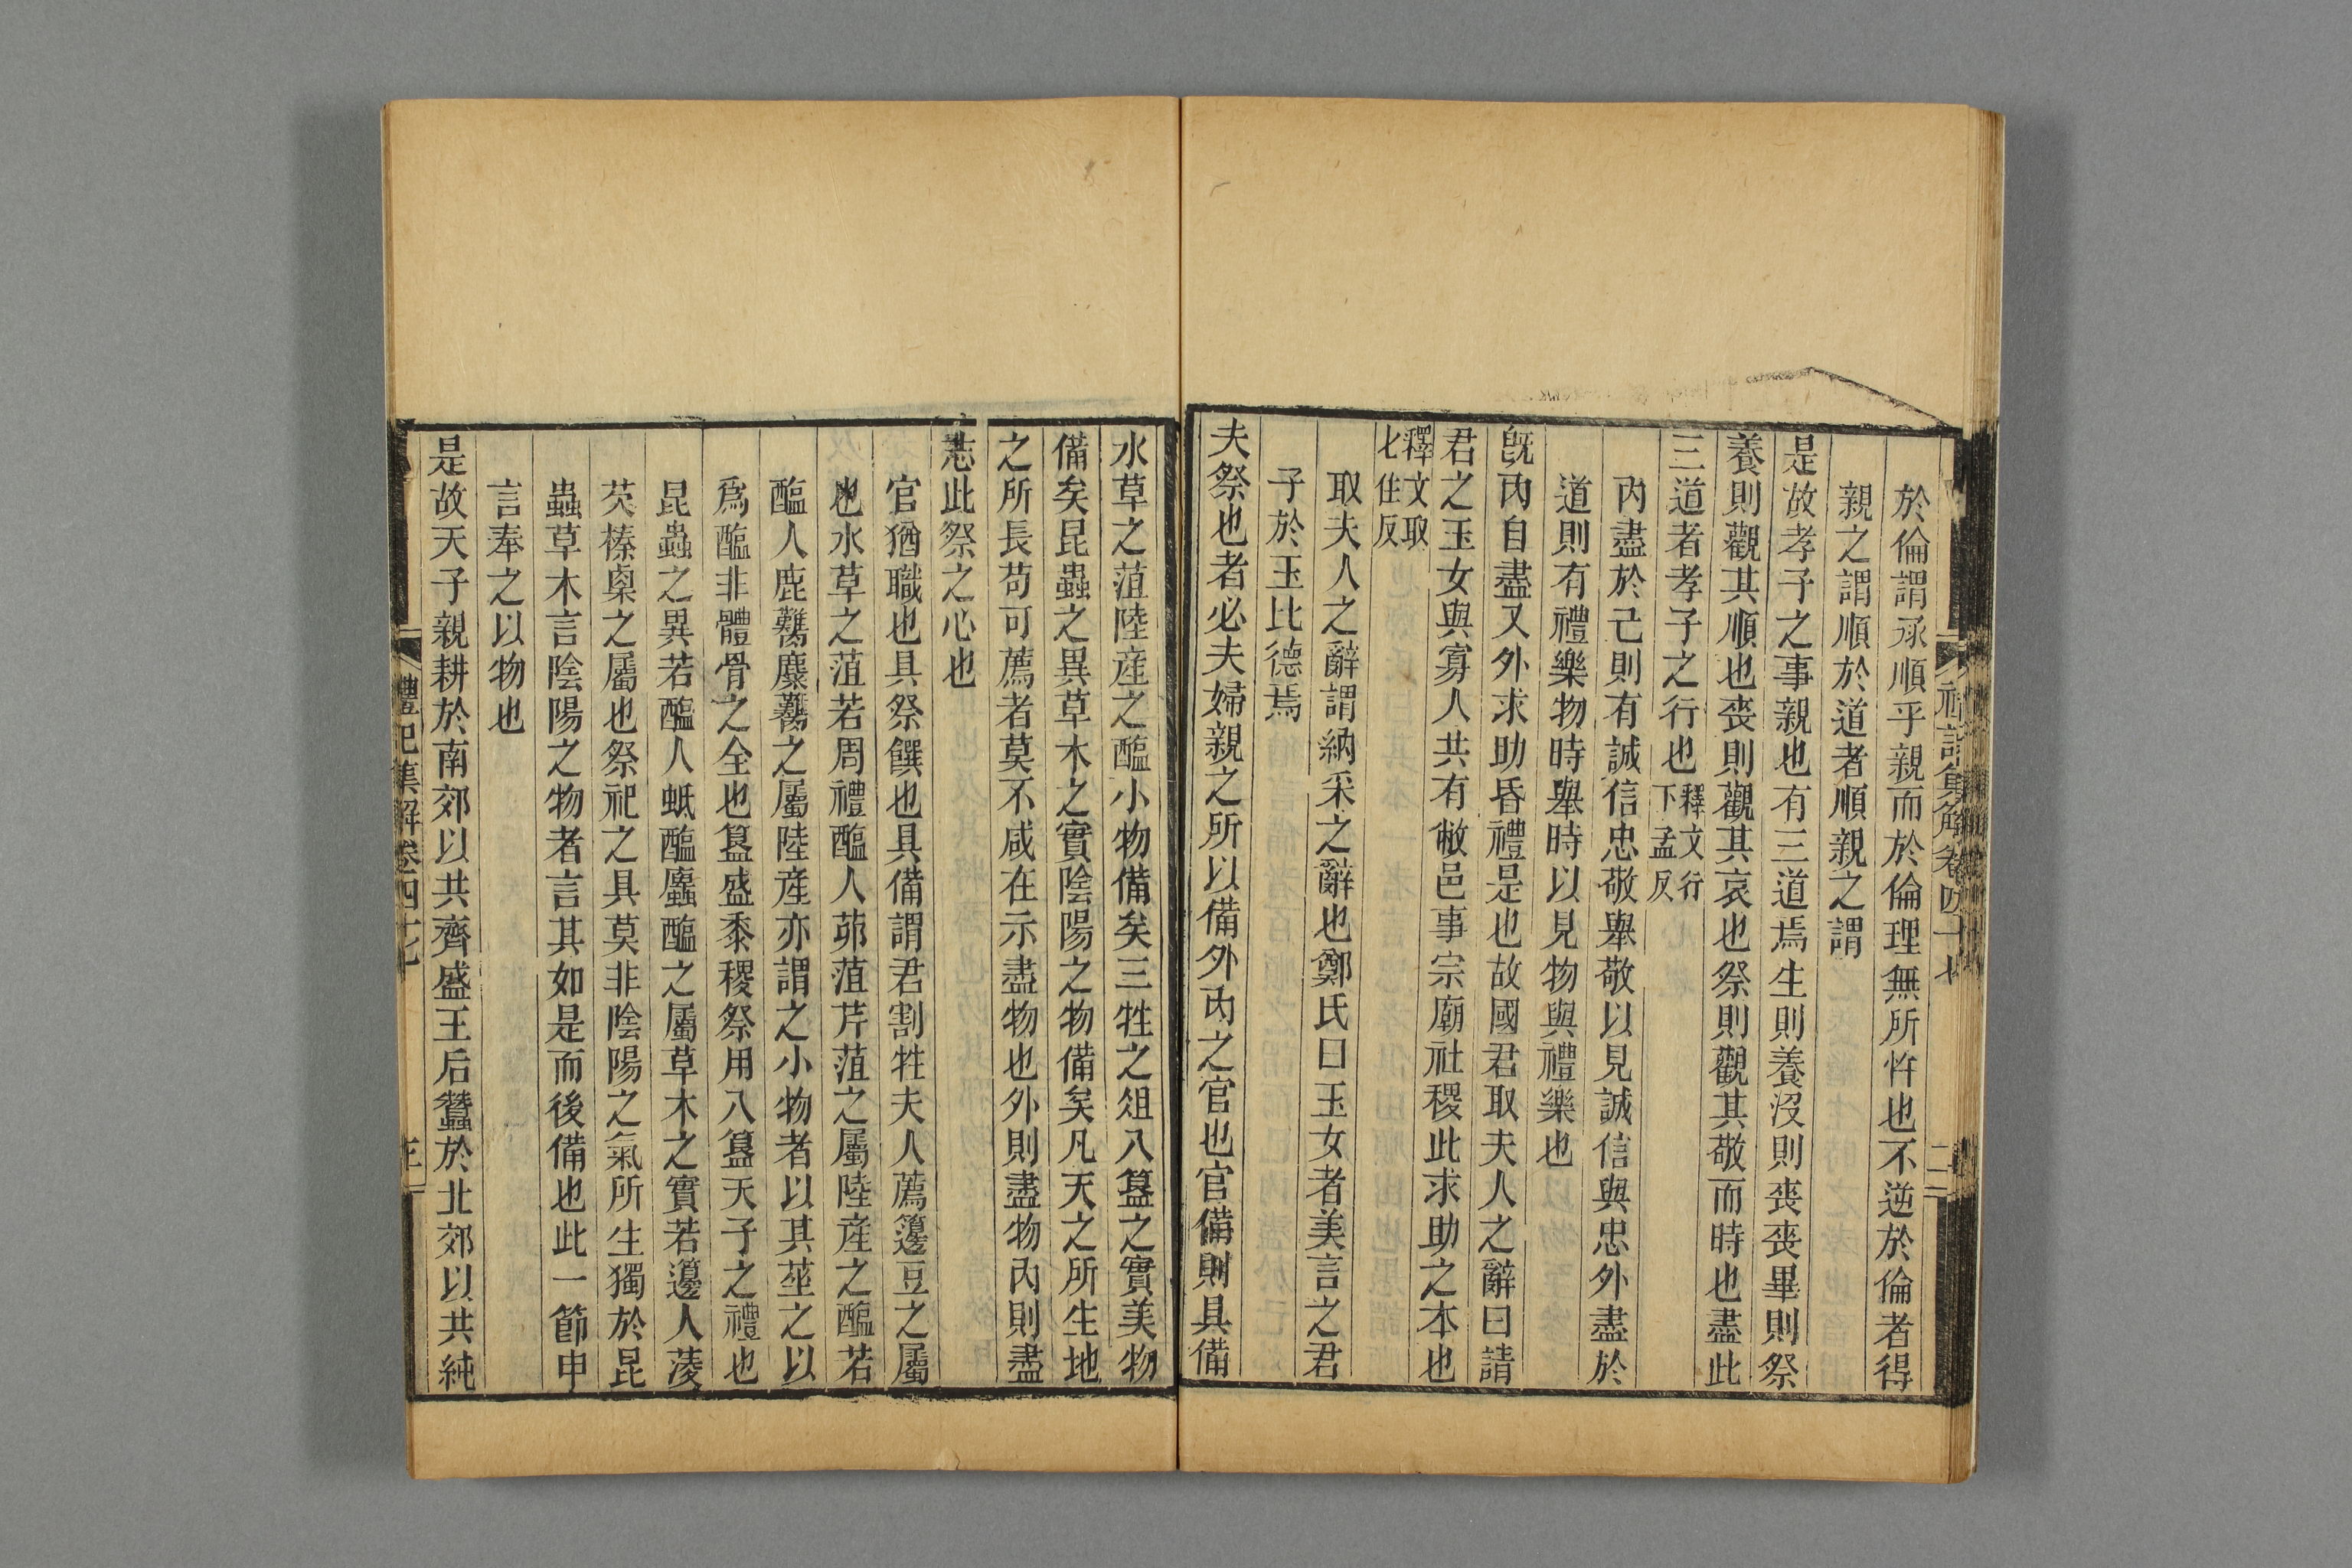 於倫謂承順乎親而於倫理無所忤也不逆於倫者得
親之謂順於道者順親之謂
是故孝子之事親也有三道焉生則養沒則喪喪畢則祭
養則觀其順也喪則觀其哀也祭則觀其敬而時也盡此
三道者孝子之行也釋文行下孟反
內盡於己則有誠信忠敬舉敬以見誠信與忠外盡於
道則有禮樂物時舉時以見物與禮樂也
旣內自盡又外求助昏禮是也故國君取夫人之辭曰請
君之玉女與寡人共有敝邑事宗廟社稷此求助之本也
釋文取七住反
取夫人之辭謂納采之辭也鄭氏曰玉女者美言之君
子於玉比德焉
夫祭也者必夫婦親之所以備外內之官也官備則具備
水草之菹陸產之醢小物備矣三牲之俎八簋之實美物
備矣昆蟲之異草木之實陰陽之物備矣凡天之所生地
之所長苟可薦者莫不咸在示盡物也外則盡物內則盡
志此祭之心也
官猶職也具祭饌也具備謂君割牲夫人薦籩豆之屬
也水草之菹若周禮醢人茆菹芹菹之屬陸產之醢若
醢人鹿臡麋臡之屬陸產亦謂之小物者以其莝之以
爲醢非體骨之全也簋盛黍稷祭用八簋天子之禮也
昆蟲之異若醢人蚳醢蠯醢之屬草木之實若籩人蔆
芡榛㮚之屬也祭祀之具莫非陰陽之氣所生獨於昆
蟲草木言陰陽之物者言其如是而後備也此一節申
言奉之以物也
是故天子親耕於南郊以共齊盛王后蠶於北郊以共純
禮記集解卷四十七